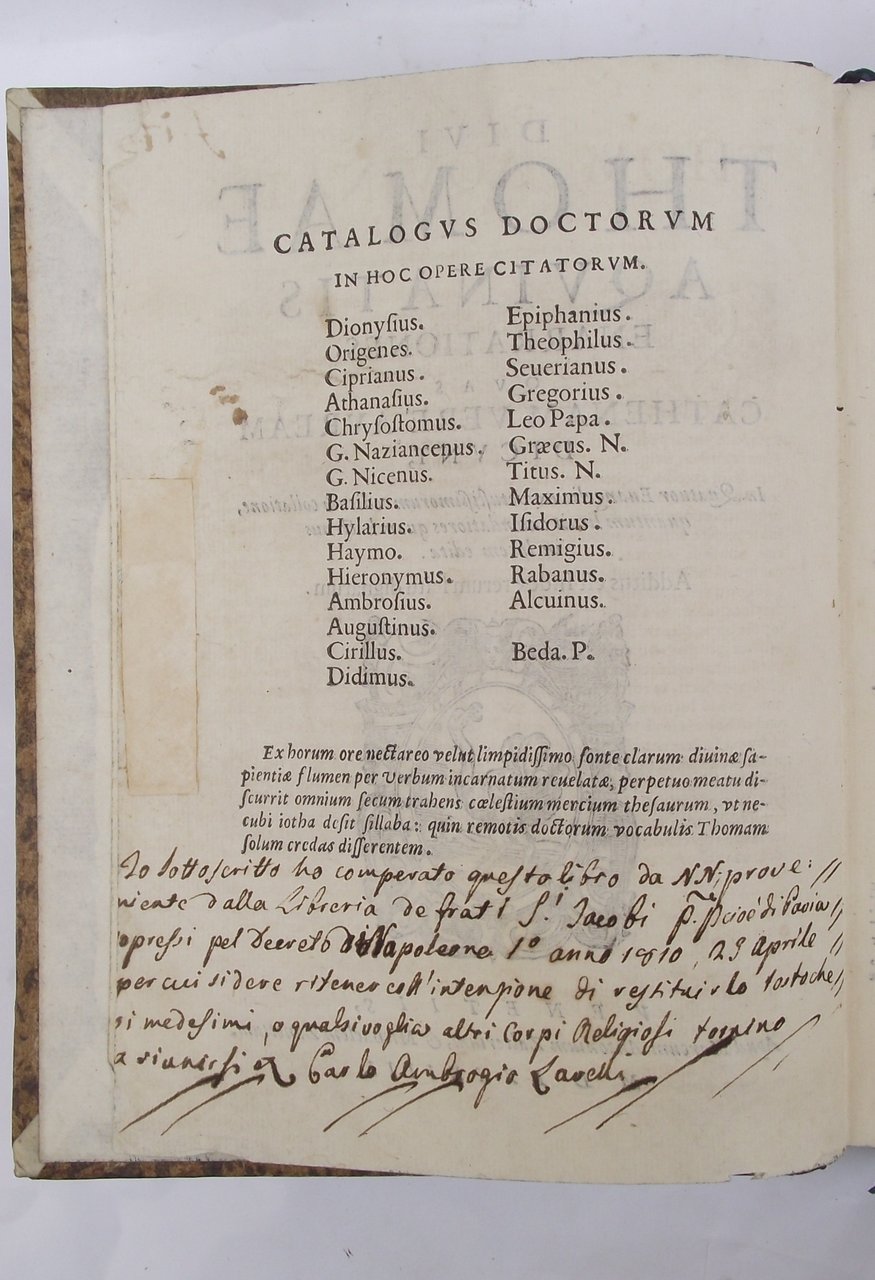 CATALOGVS DOCTORVM
IN HOC OPERE CITATORVM.
Dionyſius.
Origenes.
Ciprianus.
Athanaſius.
Chryſoſtomus.
G. Naziancenus.
G. Nicenus.
Baſilius.
Hylarius.
Haymo.
Hieronymus.
Ambroſius.
Auguſtinus.
Cirillus.
Didimus.
Epiphanius.
Theophilus.
Seuerianus.
Gregorius.
Leo Papa.
Græcus. N.
Titus. N.
Maximus.
Iſidorus.
Remigius.
Rabanus.
Alcuinus.
Beda. P.
Ex horum ore nectareo velut limpidiſſimo fonte clarum diuinæ ſa-
pientiæ flumen per Verbum incarnatum reuelatæ, perpetuo meatu di-
ſcurrit omnium ſecum trahens cœleſtium mercium theſaurum, vt ne-
cubi iotha deſit ſillaba: quin remotis doctorum vocabulis Thomam
ſolum credas diſſerentem.
Io sottoscritto ho comperato questo libro da NN: prove:
niente dalla Libreria de frati S.ti Jacobi cioè di Pavia
opressi pel Decreto di Napoleone 1º anno 1810, 25 Aprile
per cui si deve ritener coll'intenzione di restituirlo tostoche
si medesimi, o qualsivoglia altri Corpi Religiosi tornino
a riunirsi Carlo Ambrogio Lavelli